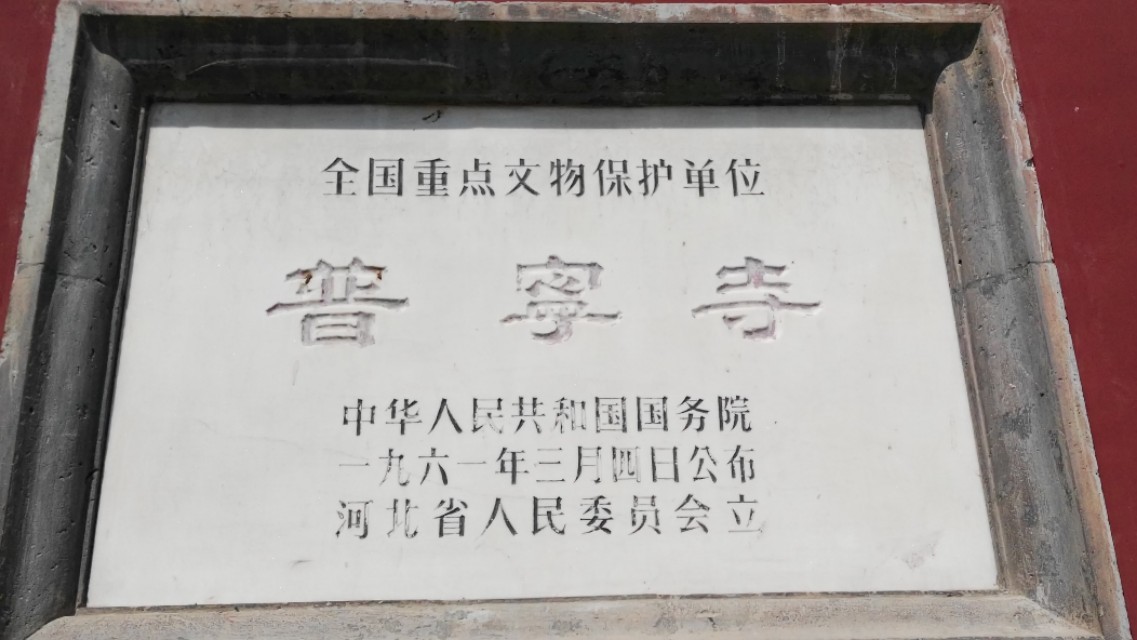 全国重点文物保护单位
普寧寺
中华人民共和国国务院
一九六一年三月四日公布
河北省人民委员会立